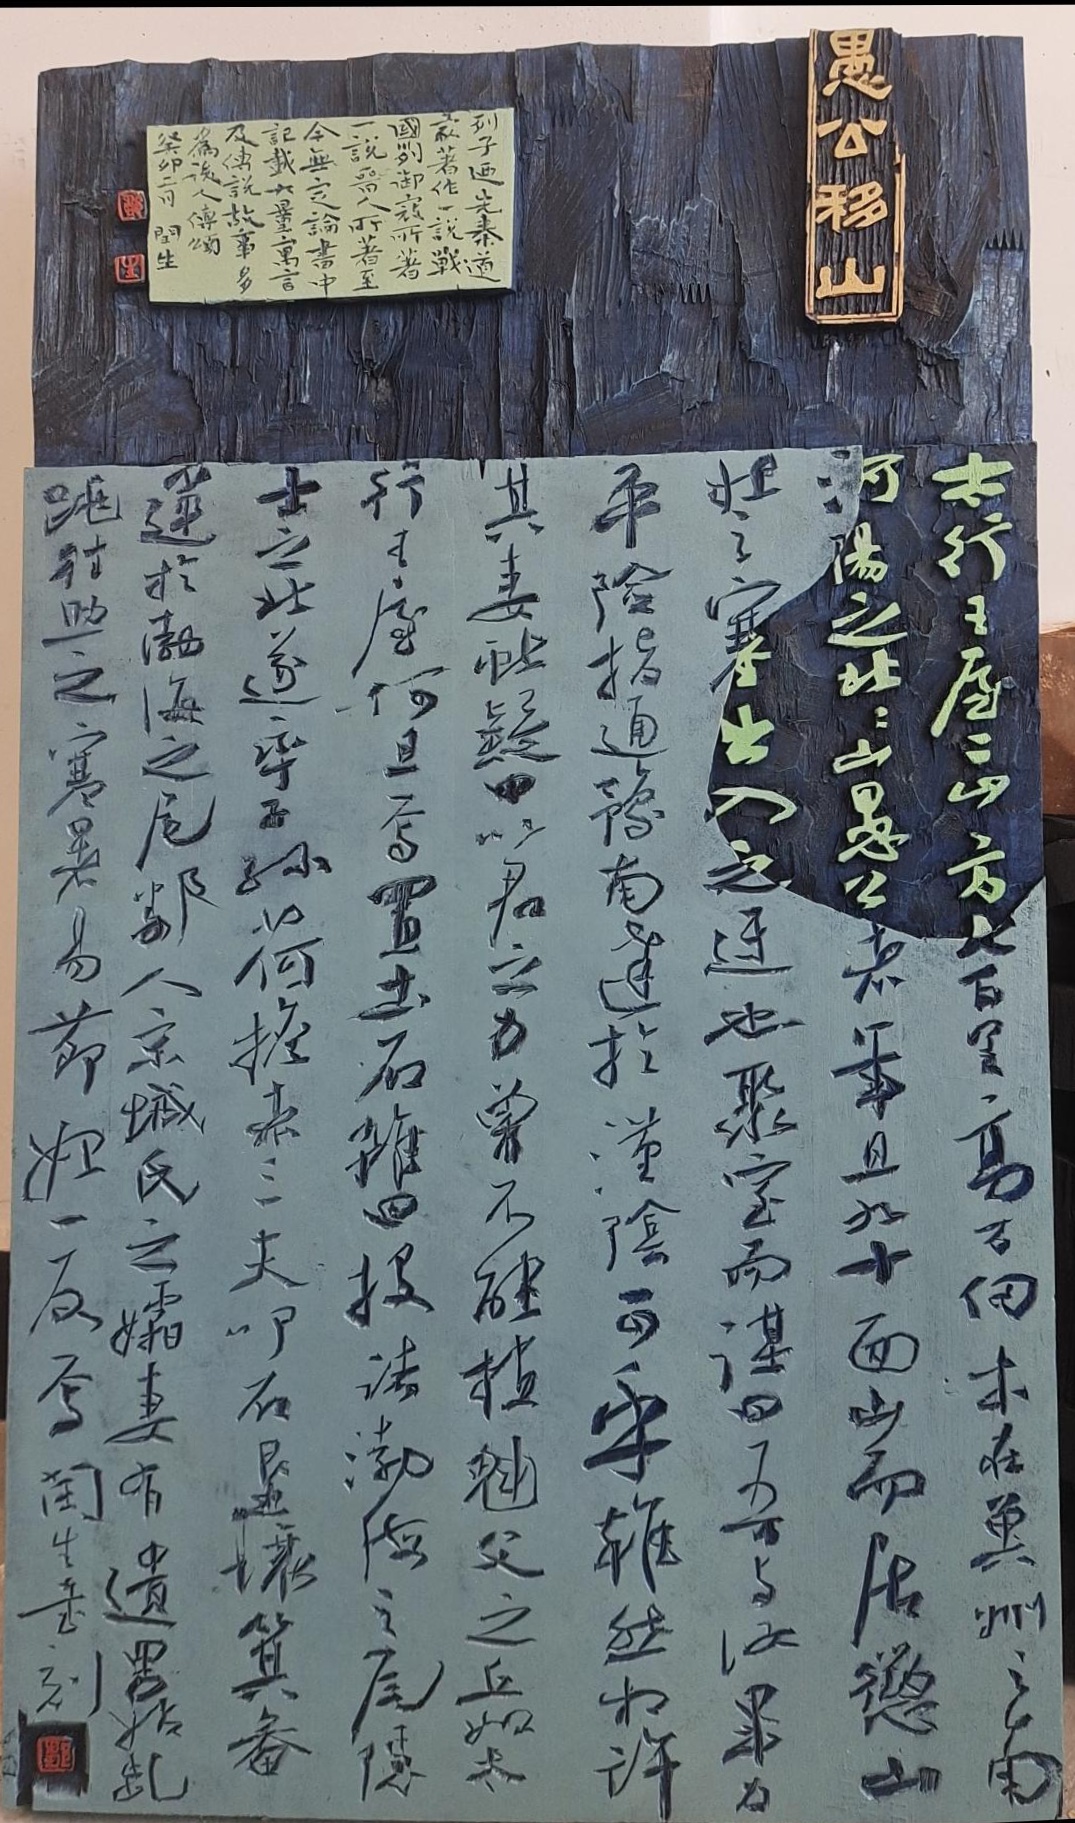 愚公移山
列子乃先秦道
家著作一說戰
國列御寇所著
一說晉人所著至
今無定論書中
記載大量寓言
及傳說故事多
為後人傳頌
癸卯二月 閏生
太行王屋二山方七百里高万仞本在冀州之南
河陽之北北山愚公者年且九十面山而居懲山
北之塞出入之迂也聚室而謀曰吾与汝畢力
平險指通豫南達於漢陰可乎雜然相許
其妻獻疑曰以君之力曾不能損魁父之丘如太
行王屋何且焉置土石雜曰投諸渤海之尾隱
土之北遂率子孫荷擔者三夫叩石墾壤箕畚
運於渤海之尾鄰人京城氏之孀妻有遺男始齔
跳往助之寒暑易節始一反焉 閏生書刻